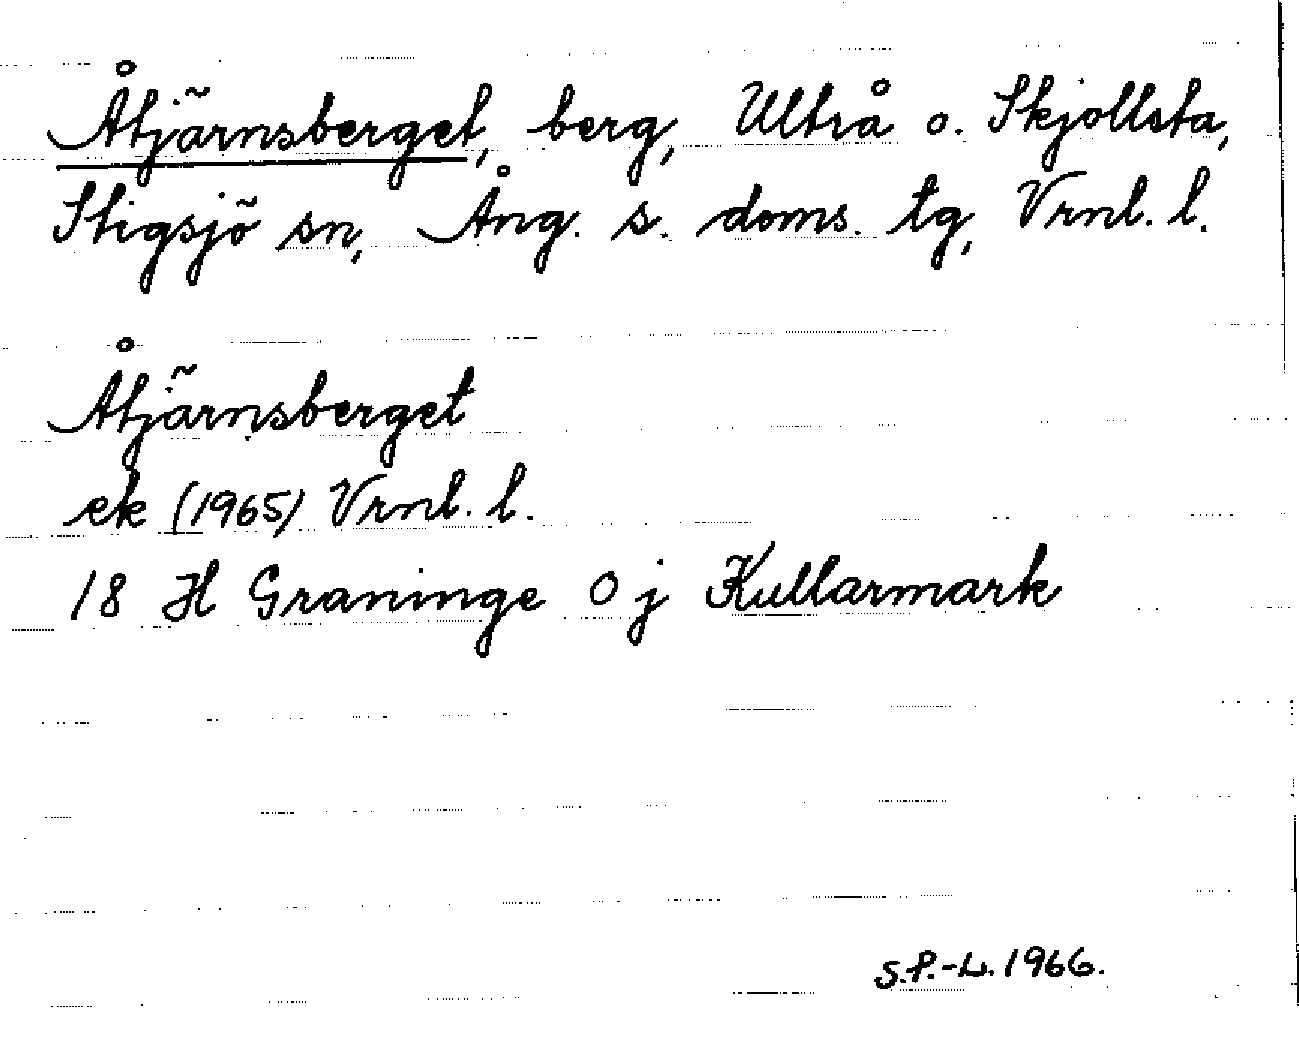 Åtjärnsberget, berg, Ultrå o. Skjollsta,
Stigsjö sn, Ång. s. doms. tg, Vrnl. l.
Åtjärnsberget
ek (1965) Vrnl. l.
18 H Graninge O j Kullarmark
S.P.-L. 1966.